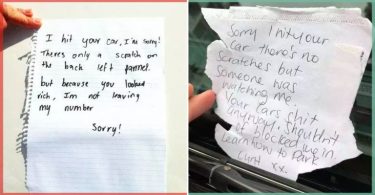 I hit your car, I'm sorry!
Theres only a scratch on
the back left pannel.
but because you looked
rich, Im not leaving
my number
Sorry!
Sorry I hit your
car there's no
scratches but
someone was
watching me.
Your cars shit
anyway. Shouldn't
of blocked me in
Learn how to Park
Cunt xx.